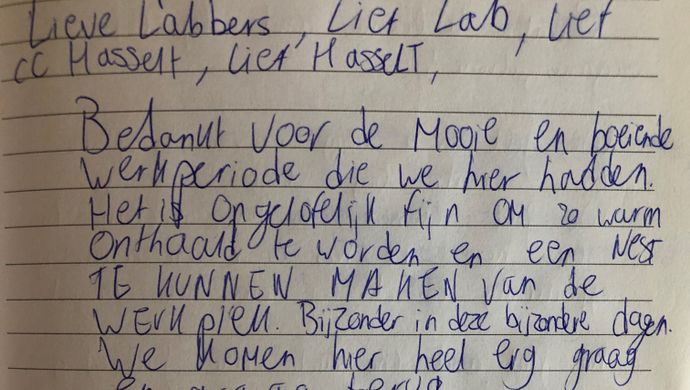 Lieve Labbers, Lief Lab, Lief
CC Hasselt, Lief HASSELT,
Bedankt voor de Mooie en boeiende
werkperiode die we hier hadden.
Het is ongelofelijk fijn OM zo warm
Onthaald te worden en een NEST
TE KUNNEN MAKEN van de
WERKPLEK. Bijzonder in deze bijzondere dagen.
We komen hier heel erg graag
terug